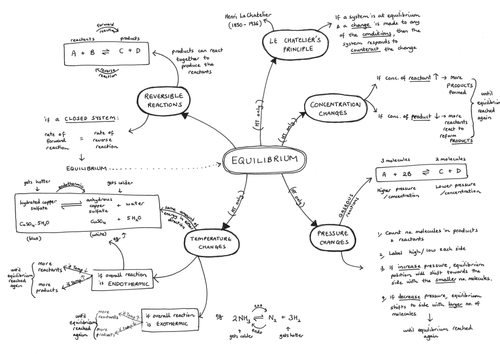 forward
reaction
reactants
products
A + B ⇌ C + D
reverse
reaction
products can react
together to
produce the
reactants
REVERSIBLE
REACTIONS
if a CLOSED SYSTEM:
rate of
forward
reaction
=
rate of
reverse
reaction
EQUILIBRIUM
Henri Le Chatelier
(1850 - 1936)
LE CHATELIER'S
PRINCIPLE
If a system is at equilibrium
& a change is made to any
of the conditions, then the
system responds to
counteract the change
(HT only)
CONCENTRATION
CHANGES
(HT only)
If conc. of reactant ↑ → more
PRODUCTS
formed
If conc. of product ↓ → more
reactants
react to
reform
PRODUCTS
until
equilibrium
reached
again
EQUILIBRIUM
(HT only)
PRESSURE
CHANGES
GASEOUS
reactions
3 molecules
2 molecules
A + 2B ⇌ C + D
Higher pressure
/concentration
Lower pressure
/concentration
1, Count no. molecules in products
& reactants
2, Label high/low each side
3, If increase pressure, equilibrium
position will shift towards the
side with the smaller no. molecules.
4, If decrease pressure, equilibrium
shifts to side with larger no. of
molecules
until equilibrium reached
again
(HT only)
TEMPERATURE
CHANGES
same amount of
energy in either
direction
gets hotter
endothermic
gets colder
hydrated copper
sulfate
⇌
anhydrous
copper
sulfate
+ water
CuSO₄·5H₂O
CuSO₄
+ 5H₂O
(blue)
(white)
eg.
if overall reaction
is ENDOTHERMIC
more
reactants
more
products
until
equilibrium
reached
again
if overall reaction
is EXOTHERMIC
more
reactants
more
products
until
equilibrium
reached
again
eg.
2NH₃ ⇌ N₂ + 3H₂
gets colder
gets hotter